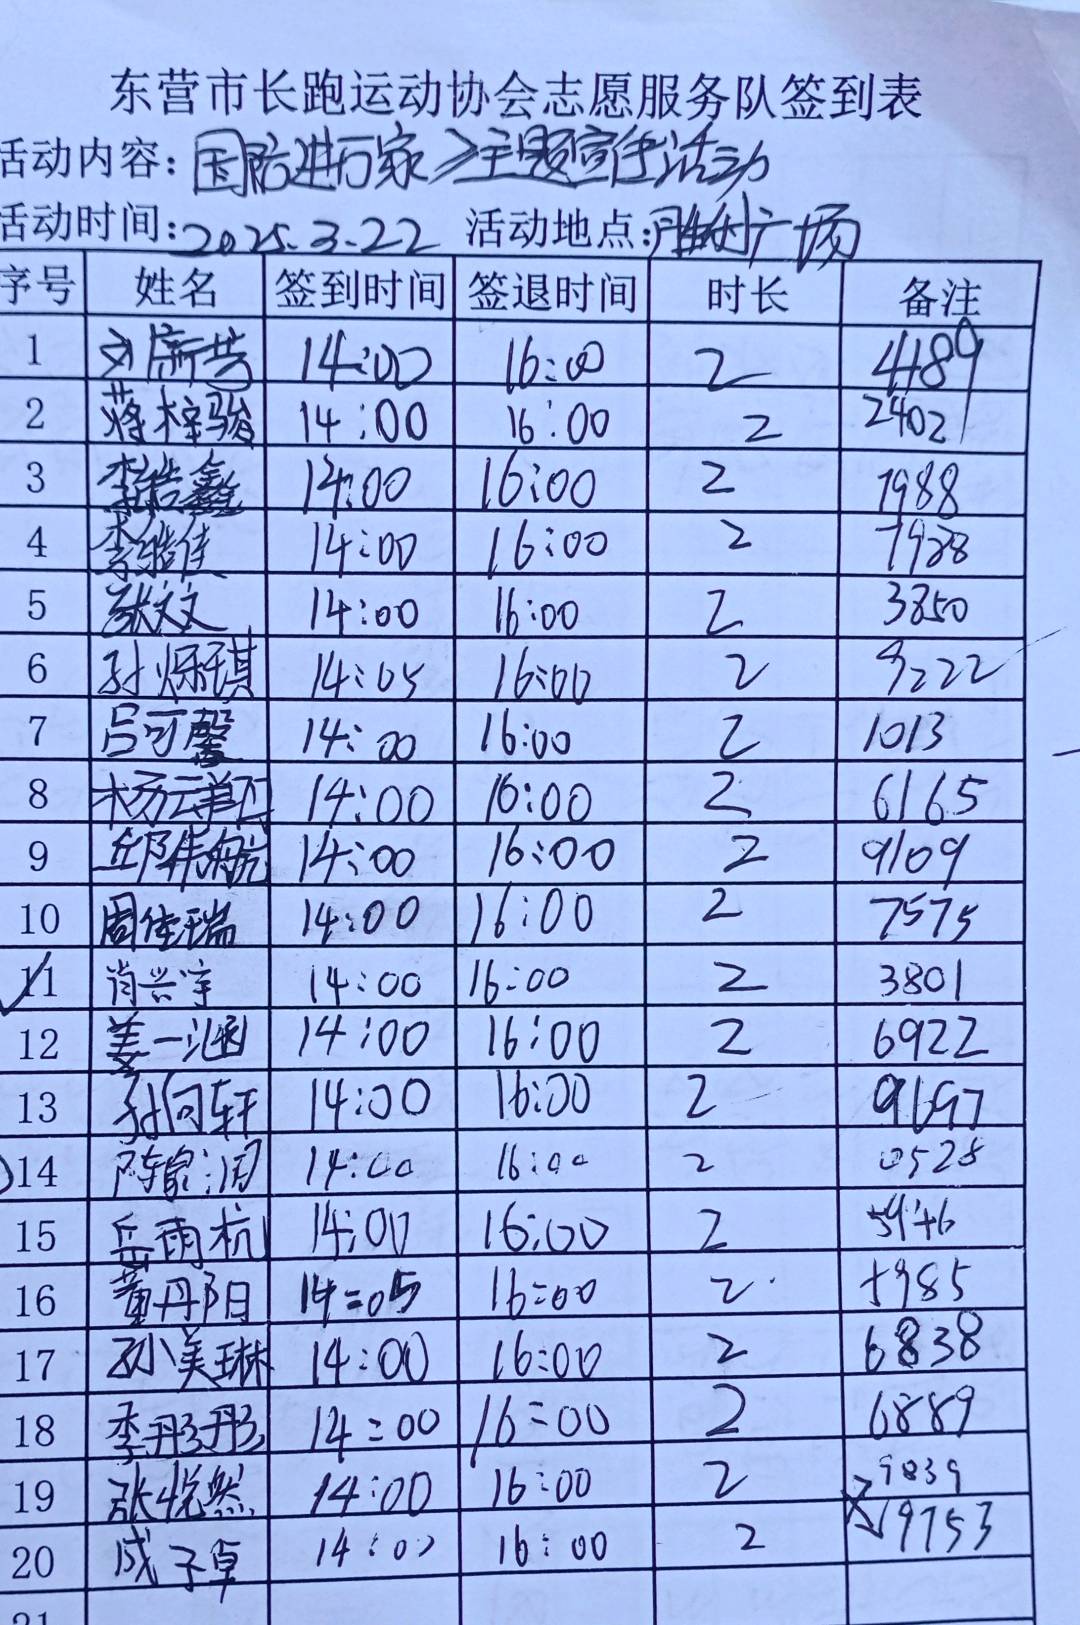 东营市长跑运动协会志愿服务队签到表
活动内容：国防进万家》主题宣传活动
活动时间：2025.3.22 活动地点：胜利广场
序号 姓名 签到时间 签退时间 时长 备注
1 刘新芳 14:00 16:00 2 4189
2 蒋梓骏 14:00 16:00 2 2402
3 李浩鑫 14:00 16:00 2 7988
4 李雅佳 14:00 16:00 2 7928
5 张文文 14:00 16:00 2 3850
6 孙烁琪 14:05 16:00 2 9222
7 吕可馨 14:00 16:00 2 1013
8 14:00 16:00 2 6165
9 邱伟航 14:00 16:00 2 9109
10 周佳瑞 14:00 16:00 2 7575
11 肖兴宇 14:00 16:00 2 3801
12 姜一涵 14:00 16:00 2 6922
13 孙何轩 14:00 16:00 2
14 陈家润 14:00 16:00 2 0528
15 岳雨杭 14:00 16:00 2 5946
16 董丹阳 14:05 16:00 2
17 孙美琳 14:00 16:00 2 6838
18 李彤彤 14:00 16:00 2 6889
19 张悦然 14:00 16:00 2 9839
20 成子卓 14:00 16:00 2 9753
21